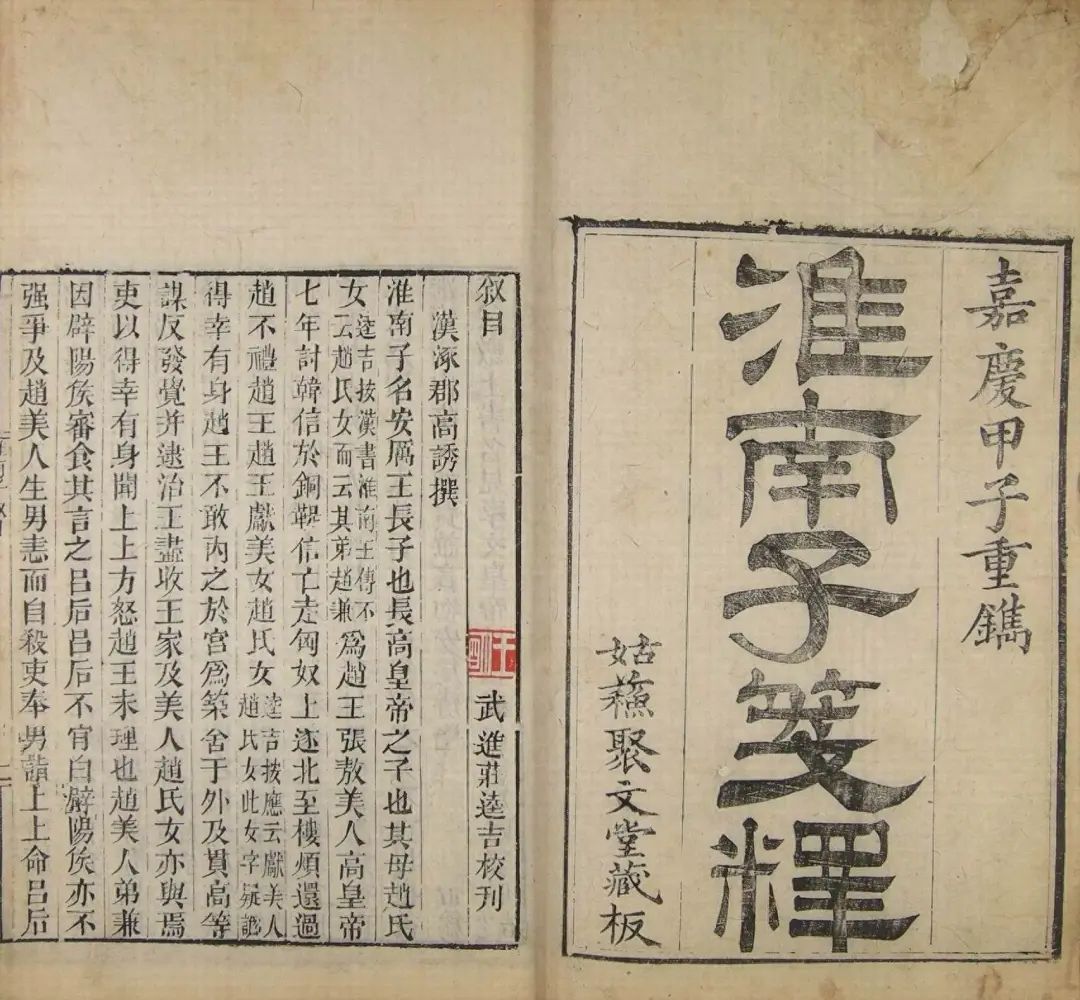 嘉慶甲子重鐫
淮南子箋釋
姑蘓聚文堂藏板
叙目
武進莊逵吉校刊
漢涿郡高誘撰
淮南子名安厲王長子也長高皇帝之子也其母趙氏
女逵吉按漢書淮南王傳不云趙氏女而云其弟趙兼為趙王張敖美人高皇帝
七年討韓信於銅鞮信亡走匈奴上遂北至樓煩還過
趙不禮趙王趙王獻美女趙氏女逵吉按應云獻美人趙氏女此女字疑譌
得幸有身趙王不敢內之於宮為築舍于外及貫高等
謀反發覺并逮治王盡收王家及美人趙氏女亦與焉
吏以得幸有身聞上上方怒趙王未理也趙美人弟兼
因辟陽侯審食其言之呂后呂后不肯白辟陽侯亦不
强爭及趙美人生男恚而自殺吏奉男詣上上命呂后